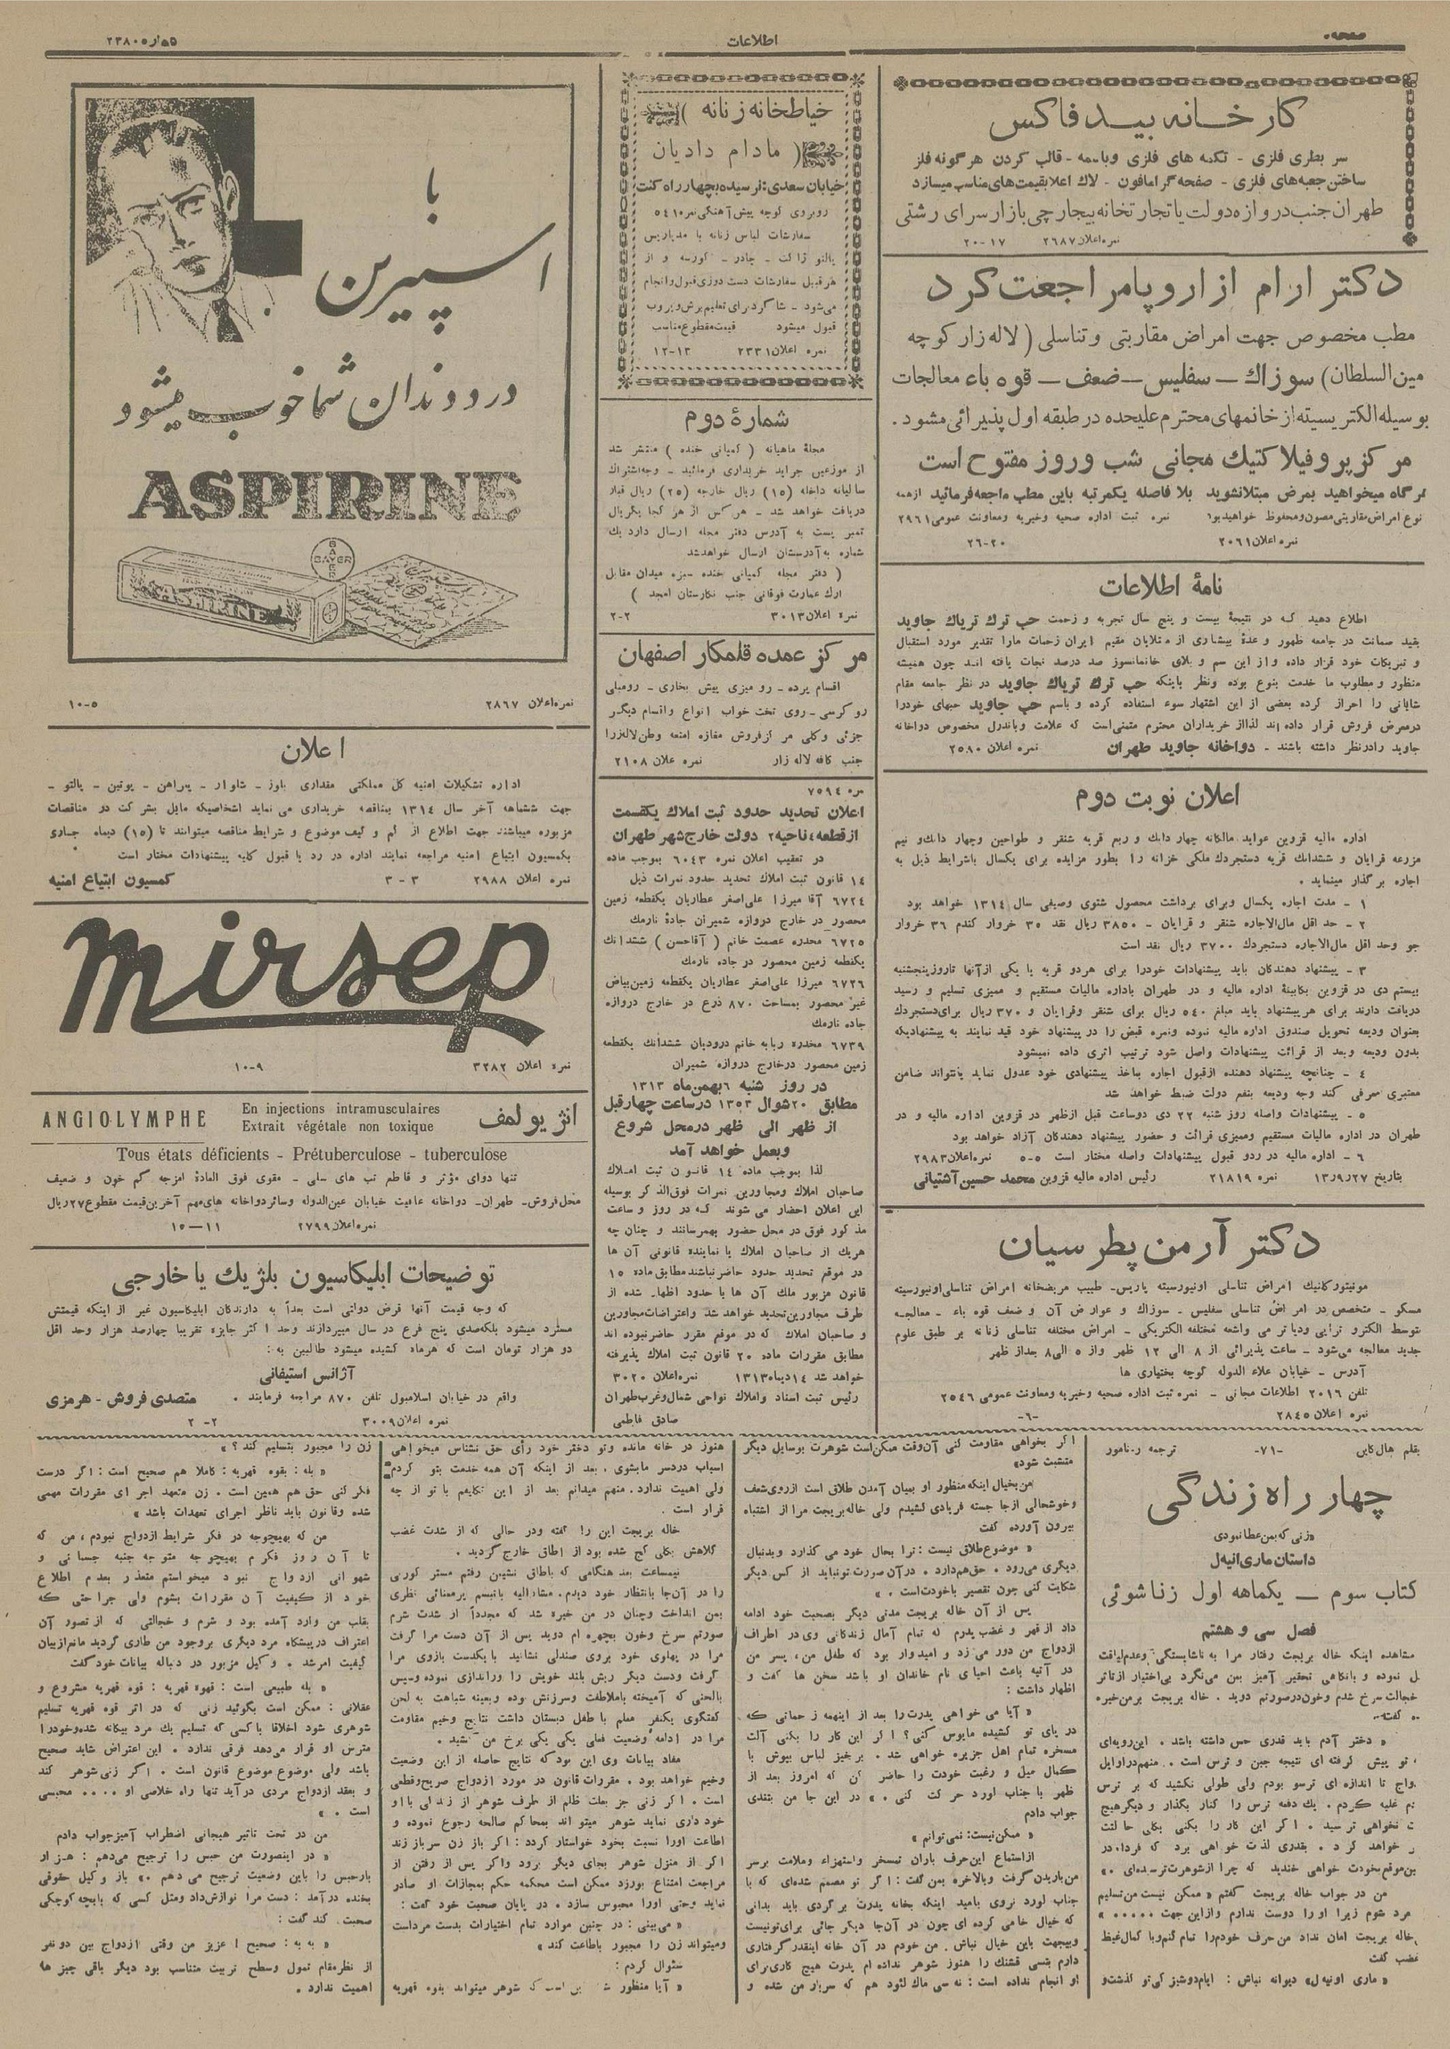 اطلاعات
کارخانه بید فاکس
سر بطری فلزی - تکمه های فلزی وباسمه - قالب کردن هر گونه فلز
ساختن جعبه های فلزی - صفحه گرامافون - لاک اعلا بقیمت‌های مناسب میسازد
طهران جنب دروازه دولت یا تجارتخانه بیجارچی بازار سرای رشتی
نمره اعلان ۲۶۸۷ ۱۷-۲۰
دکتر ارام از اروپا مراجعت کرد
مطب مخصوص جهت امراض مقاربتی و تناسلی ( لاله زار کوچه
مین السلطان) سوزاك – سفلیس – ضعف – قوه باء معالجات
بوسیله الکتریسیته از خانمهای محترم علیحده در طبقه اول پذیرائی مشود .
مرکز پروفیلاکتیك مجانی شب وروز مفتوح است
هرگاه میخواهید بمرض مبتلا نشوید بلا فاصله یکمرتبه باین مطب مراجعه فرمائید
نوع امراض مقاربتی مصون ومحفوظ خواهید بود نمره ثبت اداره صحیه وخیریه ومعاونت عمومی ۲۹۶۱
نمره اعلان ۲۰۶۱ ۲۰-۲۶
نامهٔ اطلاعات
اطلاع دهید که در نتیجهٔ بیست و پنج سال تجربه و زحمت حب ترك تریاك جاوید
بقید ضمانت در جامعه ظهور و عدهٔ بیشماری از مبتلایان مقیم ایران زحمات مارا تقدیر مورد استقبال
و تبریکات خود قرار داده و از این سم و بلای خانمانسوز صد درصد نجات یافته اند چون همیشه
منظور و مطلوب ما خدمت بنوع بوده ونظر باینکه حب ترك تریاك جاوید در نظر جامعه مقام
شایانی را احراز کرده بعضی از این اشتهار سوء استفاده کرده و باسم حب جاوید حبهای خودرا
درمعرض فروش قرار داده اند لذا از خریداران محترم متمنی است که علامت وباندرل مخصوص دواخانه
جاوید رادرنظر داشته باشند - دواخانه جاوید طهران نمره اعلان ۲۵۸۰
اعلان نوبت دوم
اداره مالیه قزوین عواید مالکانه چهار دانك و ربع قریه شنقر و طواحین وچهار دانك و نیم
مزرعه قرایان و ششدانك قریه دستجردك ملکی خزانه را بطور مزایده برای یکسال باشرایط ذیل به
اجاره بر گذار مینماید .
۱ - مدت اجاره یکسال وبرای برداشت محصول شتوی وصیفی سال ۱۳۱۴ خواهد بود
۲ - حد اقل مال‌الاجاره شنقر و قرایان - ۳۸۵۰ ریال نقد ۳۵ خروار گندم ۳۶ خروار
جو وحد اقل مال‌الاجاره دستجردك ۳۷۰۰ ریال نقد است
۳ - پیشنهاد دهندگان باید پیشنهادات خودرا برای هردو قریه یا یکی ازآنها تاروزپنجشنبه
بیستم دی در قزوین بکابینهٔ اداره مالیه و در طهران باداره مالیات مستقیم و ممیزی تسلیم و رسید
دریافت دارند برای هرپیشنهاد باید مبلغ ۵۴۰ ریال برای شنقر وقرایان و ۳۷۰ ریال برای دستجردك
بعنوان ودیعه تحویل صندوق اداره مالیه نموده ونمره قبض را در پیشنهاد خود قید نمایند به پیشنهادیکه
بدون ودیعه وبعد از قرائت پیشنهادات واصل شود ترتیب اثری داده نمیشود
۴ - چنانچه پیشنهاد دهنده ازقبول اجاره بماخذ پیشنهادی خود عدول نماید یانتواند ضامن
معتبری معرفی کند وجه ودیعه بنفع دولت ضبط خواهد شد
۵ - پیشنهادات واصله روز شنبه ۲۲ دی دوساعت قبل ازظهر در قزوین اداره مالیه و در
طهران در اداره مالیات مستقیم وممیزی قرائت و حضور پیشنهاد دهندگان آزاد خواهد بود
۶ - اداره مالیه در ردو قبول پیشنهادات واصله مختار است ۵-۵ نمره اعلان ۲۹۸۳
بتاریخ ۱۳٫۹٫۲۷ نمره ۲۱۸۱۹ رئیس اداره مالیه قزوین محمد حسین آشتیانی
دکتر آرمن پطرسیان
مسکو - متخصص در امراض تناسلی سفلیس - سوزاك و عوارض آن و ضعف قوه باء - معالجه
جدید معالجه می‌شود - ساعت پذیرائی از ۸ الی ۱۲ ظهر واز ۵ الی ۸ بعداز ظهر
آدرس - خیابان علاء الدوله کوچه بختیاری ها
تلفن ۲۰۱۶ اطلاعات مجانی - نمره ثبت اداره صحیه وخیریه ومعاونت عمومی ۲۵۴۶
نمره اعلان ۲۸۴۵ -۶-
خیاطخانه زنانه
مادام دادیان
خیابان سعدی: نرسیده بچهار راه کنت
سفارشات لباس زنانه با مدپاریس
هرقبیل سفارشات دست دوزی قبول وانجام
می‌شود - شاگرد برای تعلیم برش وپروب
قبول میشود قیمت مقطوع مناسب
نمره اعلان ۲۳۳۱ ۱۳-۱۲
شمارهٔ دوم
مجلهٔ ماهیانه ( کمپانی خنده ) منتشر شد
از موزعین جراید خریداری فرمائید - وجه اشتراك
سالیانه داخله (۱۵) ریال خارجه (۲۵) ریال قبلا
دریافت خواهد شد - هرکس از هر کجا یکریال
تمبر پست به آدرس دفتر مجله ارسال دارد یك
شماره به‌آدرستان ارسال خواهدشد
( دفتر مجله کمپانی خنده سبزه میدان مقابل
ارك عمارت فوقانی جنب نگارستان امجد )
نمره اعلان ۳۰۱۳ ۲-۲
مرکز عمده قلمکار اصفهان
اقسام پرده - رو میزی پیش بخاری - رومبلی
رو کرسی - روی تخت خواب انواع واقسام دیگر
جزئی وکلی مرکز فروش مغازه امتعه وطن لاله‌زار
جنب کافه لاله زار نمره علان ۲۱۰۸
نمره ۷۵۹۴
اعلان تحدید حدود ثبت املاك یکقسمت
از قطعه ٤ ناحیه ۲ دولت خارج شهر طهران
در تعقیب اعلان نمره ۶۰۴۳ بموجب ماده
۱۴ قانون ثبت املاك تحدید حدود نمرات ذیل
۶۷۲۴ آقا میرزا علی‌اصغر عطاریان یکقطعه زمین
محصور در خارج دروازه شمیران جادهٔ نارمك
۶۷۲۵ مخدره عصمت خانم ( آقاحسن ) ششدانك
یکقطعه زمین محصور در جاده نارمك
۶۷۲۶ میرزا علی‌اصغر عطاریان یکقطعه زمین بیاض
غیر محصور بمساحت ۸۷۰ ذرع در خارج دروازه
جاده نارمك
۶۷۳۹ مخدره ربابه خانم درودیان ششدانك یکقطعه
زمین محصور درخارج دروازه شمیران
در روز شنبه ٦ بهمن ماه ۱۳۱۳
مطابق ۲۰ شوال ۱۳۵۳ درساعت چهار قبل
از ظهر الی ظهر درمحل شروع
وبعمل خواهد آمد
لذا بموجب ماده ۱۴ قانون ثبت املاك
صاحبان املاك ومجاورین نمرات فوق‌الذکر بوسیله
این اعلان احضار می شوند که در روز و ساعت
مذکور فوق در محل حضور بهمرسانند و چنان چه
هریك از صاحبان املاك یا نماینده قانونی آن ها
در موقع تحدید حدود حاضر نباشند مطابق ماده ۱۵
قانون مزبور ملك آن ها با حدود اظهار شده از
طرف مجاورین تحدید خواهد شد واعتراضات مجاورین
و صاحبان املاك که در موقع مقرر حاضر نبوده اند
مطابق مقررات ماده ۲۰ قانون ثبت املاك پذیرفته
خواهد شد ۱۴ دیماه ۱۳۱۳ نمره اعلان ۳۰۲۰
رئیس ثبت اسناد واملاك نواحی شمال وغرب طهران
صادق فاطمی
با
اسپیرین
درد دندان شما خوب میشود
ASPIRINE
BAYER
ASPIRINE
نمره اعلان ۲۸۶۷ ۵-۱۰
اعلان
اداره تشکیلات امنیه کل مملکتی مقداری بلوز - شلوار - پیراهن - پوتین - پالتو -
جهت ششماهه آخر سال ۱۳۱۴ بمناقصه خریداری می نماید اشخاصیکه مایل بشرکت در مناقصات
مزبوره میباشند جهت اطلاع از کم و کیف موضوع و شرایط مناقصه میتوانند تا (۱۵) دیماه جاری
بکمسیون ابتیاع امنیه مراجعه نمایند اداره در رد یا قبول کلیه پیشنهادات مختار است
نمره اعلان ۲۹۸۸ ۳-۳ کمسیون ابتیاع امنیه
mirsep
نمره اعلان ۳۲۸۲ ۹-۱۰
ANGIOLYMPHE En injections intramusculaires انژیولمف
Extrait végétale non toxique
Tous états déficients - Prétuberculose - tuberculose
تنها دوای مؤثر و قاطع تب های سلی - مقوی فوق العادهٔ امزجه کم خون و ضعیف
محل فروش - طهران - دواخانه عافیت خیابان عین‌الدوله وسائر دواخانه های مهم آخرین قیمت مقطوع ۲۷ ریال
نمره اعلان ۲۷۹۹ ۱۱-۱۵
توضیحات ابلیکاسیون بلژیك یا خارجی
که وجه قیمت آنها قرض دولتی است بعداً به دارندگان ابلیکاسیون غیر از اینکه قیمتش
مسترد میشود بلکه صدی پنج فرع در سال میپردازند وحد اکثر جایزه تقریبا چهارصد هزار وحد اقل
دو هزار تومان است که هرماه کشیده میشود طالبین به :
آژانس استیفانی
واقع در خیابان اسلامبول تلفن ۸۷۰ مراجعه فرمایند . متصدی فروش - هرمزی
نمره اعلان ۳۰۰۹ ۲-۲
بقلم هال کاین -۷۱- ترجمه ر.نامور
چهار راه زندگی
«زنی که بمن عطا نمودی
داستان ماری‌انیه‌ل
کتاب سوم — یکماهه اول زناشوئی
فصل سی و هشتم
مشاهده اینکه خاله بریجت رفتار مرا به ناشایستگی وعدم لیاقت
خجالت سرخ شدم وخون درصورتم دوید . خاله بریجت برمن خیره
« دختر آدم باید قدری حس داشته باشد . این رویه‌ای
تو پیش گرفته ای نتیجه جبن و ترس است . منهم دراوایل
من در جواب خاله بریجت گفتم « ممکن نیست من تسلیم
مرد شوم زیرا او را دوست ندارم وازاین جهت ..... »
خاله بریجت امان نداد من حرف خودم را تمام کنم وبا کمال غیظ
غضب گفت
« ماری اونیه‌ل» دیوانه نباش : ایام دوشیزگی تو گذشت و
اگر بخواهی مقاومت کنی آن‌وقت ممکن است شوهرت بوسایل دیگر
متشبث شود»
من بخیال اینکه منظور او بمیان آمدن طلاق است ازروی شعف
وخوشحالی ازجا جسته فریادی کشیدم ولی خاله بریجت مرا از اشتباه
بیرون آورده گفت
« موضوع طلاق نیست : ترا بحال خود می گذارد وبدنبال
دیگری می‌رود . حق هم دارد . در آن صورت تو نباید از کس دیگر
شکایت کنی چون تقصیر باخودت است . »
پس از آن خاله بریجت مدتی دیگر بصحبت خود ادامه
داد از قهر و غضب پدرم که تمام آمال زندگانی وی در اطراف
ازدواج من دور می زد و امیدوار بود که طفل من ، پسر من
در آتیه باعث احیای نام خاندان او باشد سخن ها گفت و
اظهار داشت :
« آیا می خواهی پدرت را بعد از اینهمه زحماتی که
در پای تو کشیده مایوس کنی؟ اگر این کار را بکنی آلت
مسخره تمام اهل جزیره خواهی شد . برخیز لباس بپوش با
کمال میل و رغبت خودت را حاضر کن که امروز بعد از
ظهر با جناب لورد حرکت کنی . » در این جا من بتندی
جواب دادم
« ممکن نیست: نمی‌توانم »
ازاستماع این حرف باران تمسخر واستهزاء وملامت برسر
من باریدن گرفت وبالاخره بمن گفت : اگر تو مصمم شده‌ای که با
جناب لورد نروی بامید اینکه بخانه پدرت برگردی باید بدانی
که خیال خامی کرده ای چون در آن‌جا دیگر جائی برای تو نیست
وبیجهت باین خیال نباش . من خودم در آن خانه اینقدر گرفتاری
دارم بتسی قشنك را هنوز شوهر نداده ام پدرت هیچ کاری برای
او انجام نداده است : نه سی ماك لئود هم که سربار من شده و
هنوز در خانه مانده وتو دختر خود رأی حق نشناس میخواهی
اسباب دردسر مابشوی . بعد از اینکه آن همه خدمت بتو کردم
ولی اهمیت ندارد . منهم میدانم بعد از این تکلیفم با تو از چه
قرار است .
خاله بریجت این را گفته ودر حالی که از شدت غضب
کلاهش بکلی کج شده بود از اطاق خارج گردید .
نیمساعت بعد هنگامی که باطاق نشیمن رفتم مستر کوربی
را در آن‌جا بانتظار خود دیدم . مشارالیه باتبسم پرمعنائی نظری
بمن انداخت وچنان در من خیره شد که مجدداً از شدت شرم
صورتم سرخ وخون بچهره ام دوید پس از آن دست مرا گرفت
مرا در پهلوی خود بروی صندلی نشانید با یکدست بازوی مرا
گرفت ودست دیگر ریش بلند خویش را وراندازی نموده وسپس
بالحنی که آمیخته باملاطفت وسرزنش بوده وبعینه شباهت به لحن
گفتگوی یکنفر معلم با طفل دبستان داشت نتایج وخیم مقاومت
مرا در ادامه وضعیت فعلی یکی یکی برخ من کشید .
مفاد بیانات وی این بود که نتایج حاصله از این وضعیت
وخیم خواهد بود . مقررات قانون در مورد ازدواج صریح وقطعی
است . اگر زنی جز بعلت ظلم از طرف شوهر از زندگی با او
خود داری نماید شوهر میتواند بمحاکم صالحه رجوع نموده و
اطاعت اورا نسبت بخود خواستار گردد : اگر باز زن سرباز زند
اگر از منزل شوهر بجای دیگر برود واگر پس از رفتن از
مراجعت امتناع بورزد ممکن است محکمه حکم بمجازات او صادر
نماید وحتی اورا محبوس سازد . در پایان صحبت خود گفت :
« می‌بینی : در چنین موارد تمام اختیارات بدست مرداست
ومیتواند زن را مجبور باطاعت کند »
سئوال کردم :
زن را مجبور بتسلیم کند ؟ »
« بله : بقوه قهریه : کاملا هم صحیح است : اگر درست
فکر کنی حق هم همین است . زن متعهد اجرای مقررات مهمی
شده وقانون باید ناظر اجرای تعهدات باشد »
من که بهیچوجه در فکر شرایط ازدواج نبودم ، من که
تا آن روز فکرم بهیچوجه متوجه جنبه جسمانی و
شهوانی ازدواج نبود میخواستم متعذر بعدم اطلاع
خود از کیفیت آن مقررات بشوم ولی جراحتی که
بقلب من وارد آمده بود و شرم و خجالتی که از تصور آن
اعتراف درپیشگاه مرد دیگری بروجود من طاری گردید مانع ازبیان
کیفیت امر شد . وکیل مزبور در دنباله بیانات خود گفت
« بله طبیعی است : قهوه قهریه : قوه قهریه مشروع و
عقلانی : ممکن است بگوئید زنی که در اثر قوه قهریه تسلیم
شوهری شود اخلاقا با کسی که تسلیم یك مرد بیگانه شده وخودرا
مترس او قرار می‌دهد فرقی ندارد . این اعتراض شاید صحیح
باشد ولی موضوع موضوع قانون است . اگر زنی شوهر کند
و بعقد ازدواج مردی درآید تنها راه خلاصی او .... محبسی
است . »
من در تحت تاثیر هیجانی اضطراب آمیز جواب دادم
« در اینصورت من حبس را ترجیح می‌دهم : هزار
بارحبس را باین وضعیت ترجیح می دهم . » باز وکیل حقوقی
بخنده درآمد : دست مرا نوازش داد ومثل کسی که بابچه کوچکی
صحبت کند گفت :
« به به : صحیح ! عزیز من وقتی ازدواج بین دونفر
از نظر مقام تمول وسطح تربیت متناسب بود دیگر باقی چیز ها
اهمیت ندارد .